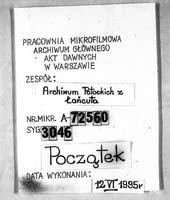 PRACOWNIA MIKROFILMOWA
ARCHIWUM GŁÓWNEGO
AKT DAWNYCH
W WARSZAWIE
ZESPÓŁ:
Archiwum Potockich z
Łańcuta
NR.MIKR. A-72560
SYG. 3046
Początek
DATA WYKONANIA:
12 VI 1985r